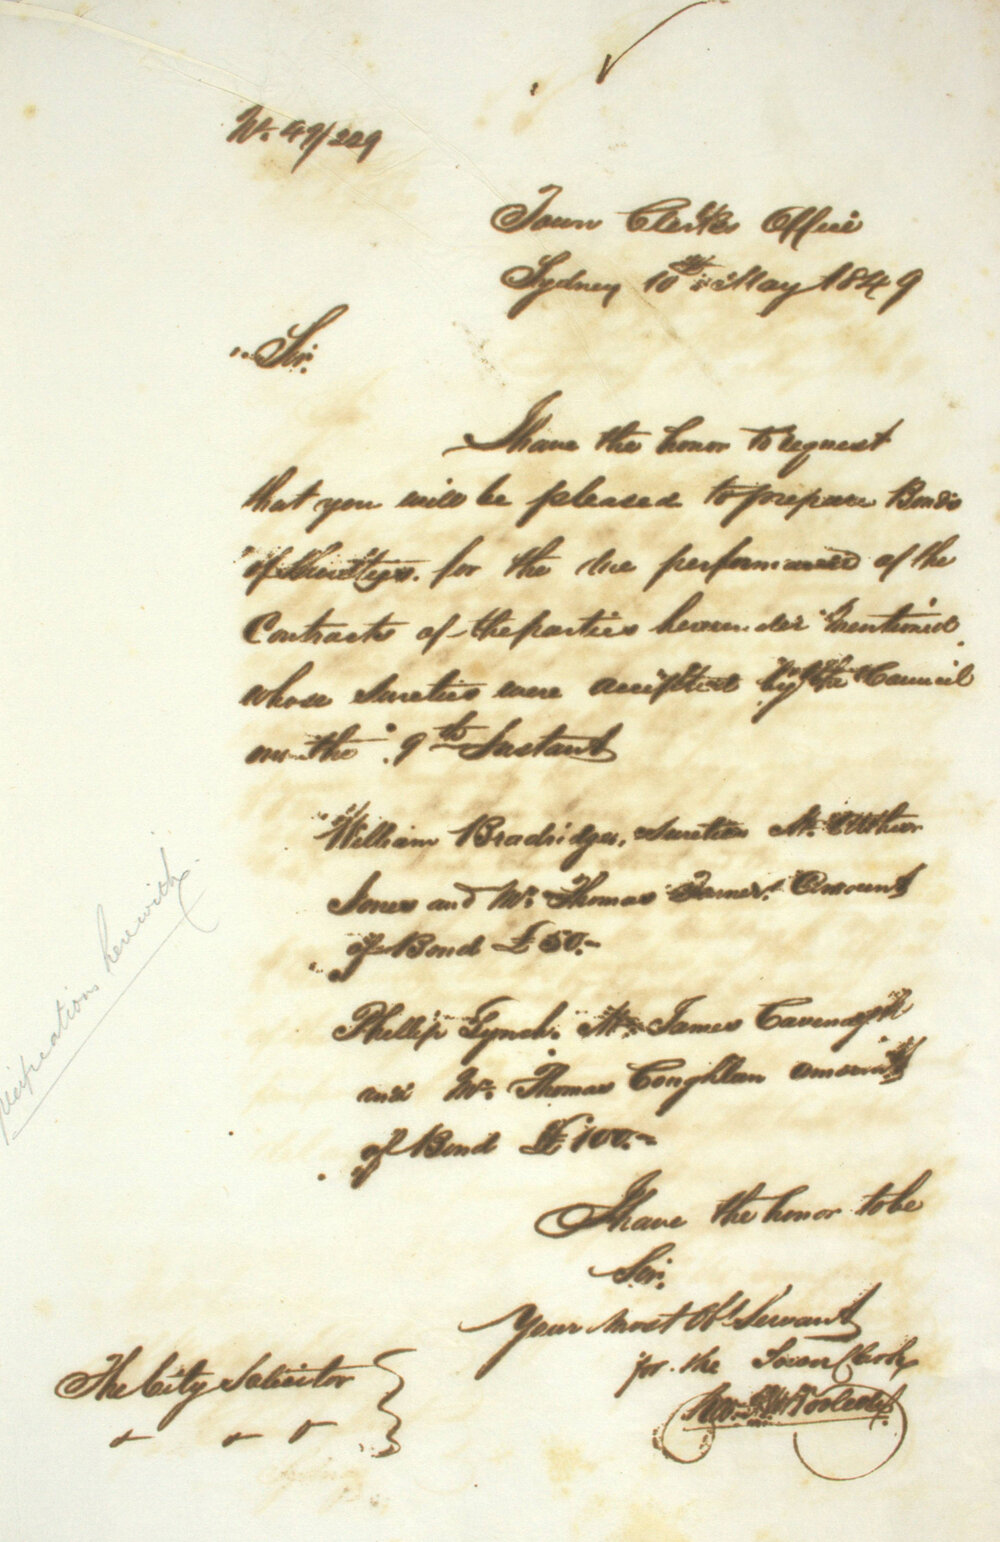 No. 49/229
Town Clerks Office
Sydney 10th May 1849
Sir.
I have the honor to request
that you will be pleased to prepare Bonds
of for the due performance of the
Contracts of the parties hereunder mentioned
whose sureties were accepted by the Council
on the 9th Instant
William Bradridge, Sureties Mr.
Jones and Mr. Thomas Amount
of Bond £50.-
Phillip Lynch. Mr. James Cavenagh
and Mr. Thomas Coghlan amount
of Bond £100.-
I have the honor to be
Sir.
Your most Obt. Servant
for the Town Clerk
The City Solicitor
herewith